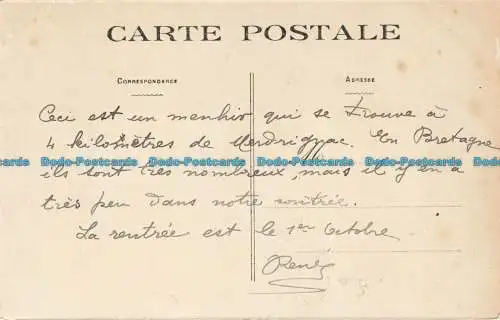 CARTE POSTALE
CORRESPONDANCE
ADRESSE
Ceci est un menhir qui se trouve à
4 kilomètres de Merdrignac. En Bretagne
Dodo-Postcards Dodo-Postcards Dodo-Postcards Dodo-Postcards
ils sont très nombreux, mais il y en a
très peu dans notre contrée.
La rentrée est le 1er Octobre
René